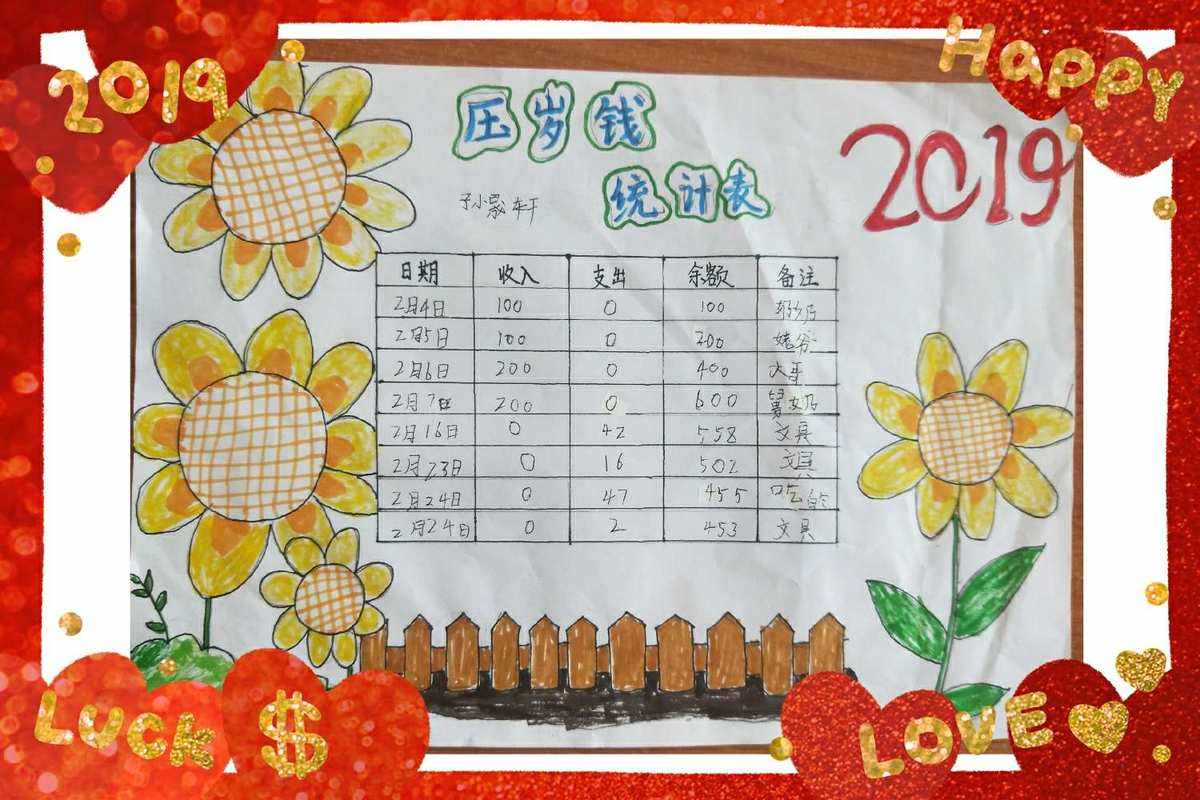 2019
Happy
压岁钱
2019
统计表
日期 收入 支出 余额 备注
2月4日 100 0 100 奶奶
2月5日 100 0 200
2月6日 200 0 400 大哥
2月7日 200 0 600 舅奶
2月16日 0 42 558 文具
2月23日 0 16 502 文具
2月24日 0 47 455 吃的
2月24日 0 2 453 文具
LUCK $
LOVE